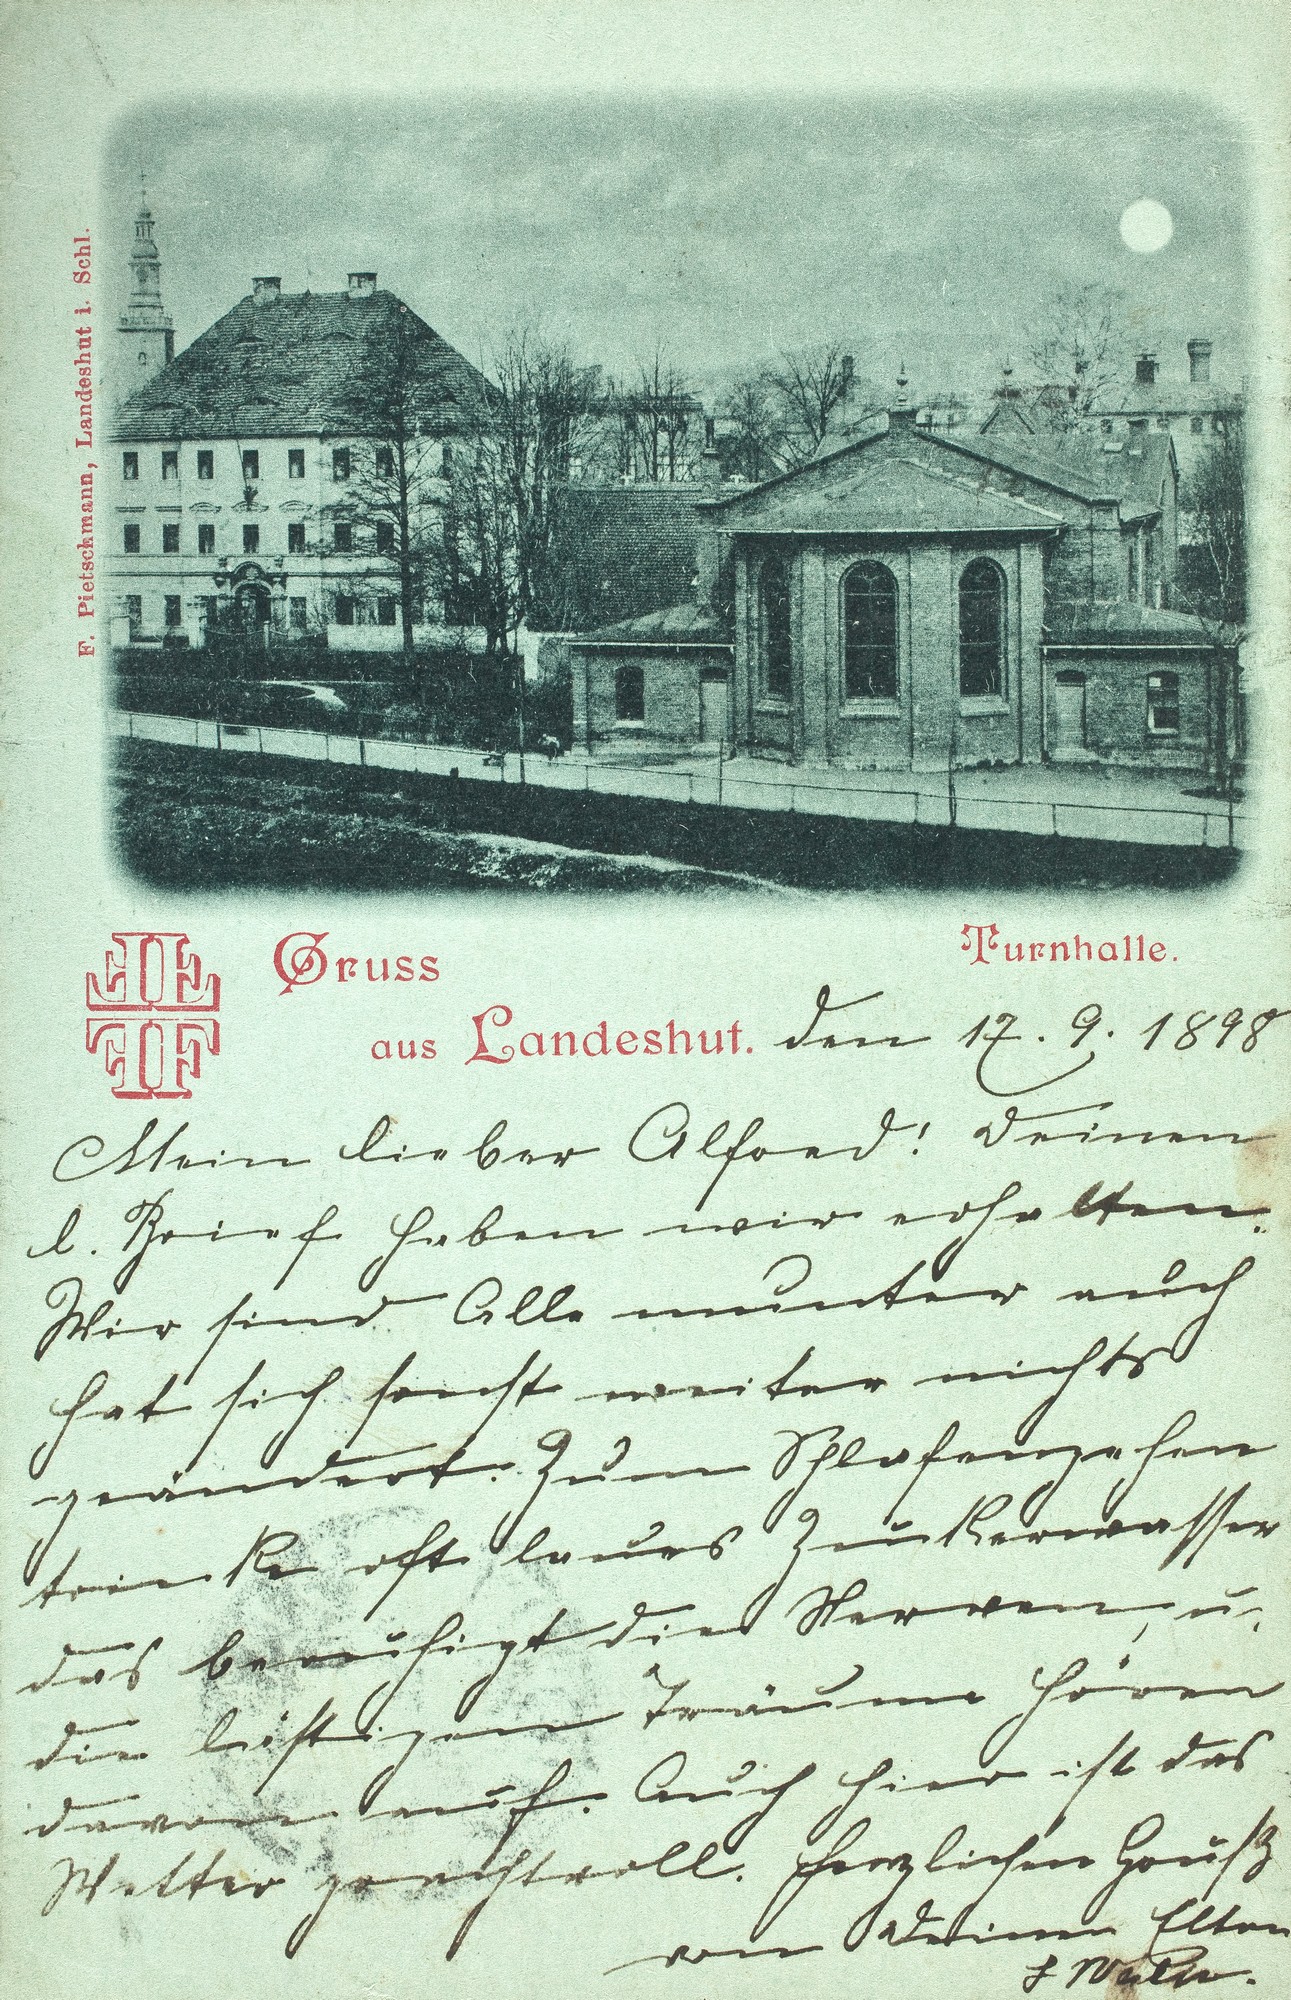 F. Pietschmann, Landeshut i. Schl.
Gruss
aus Landeshut.
Turnhalle.
den 17. 9. 1898
Mein lieber Alfred! Deinen
l. Brief haben wir erhalten.
Wir sind Alle munter auch
hat sich sonst weiter nichts
geändert. Zum Schlafengehen
trinke oft laues Zuckerwasser
das beruhigt die Nerven, u.
die lästigen Träume hören
davon auf. Auch hier ist das
Wetter prachtvoll. Herzlichen Gruß
von Deinen Eltern